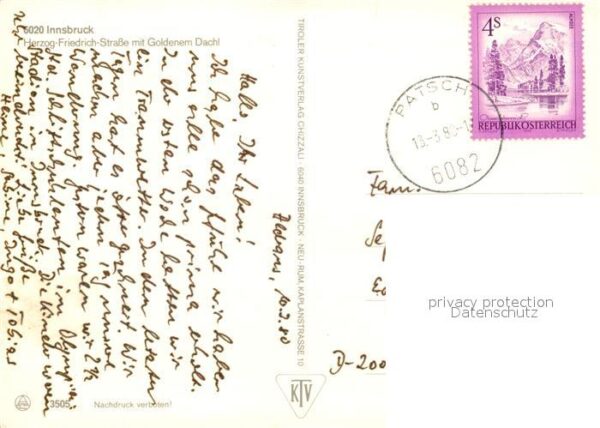 6020 Innsbruck
Herzog-Friedrich-Straße mit Goldenem Dachl
Hallo, Ihr Lieben!
Ich habe das Gefühl wir haben
uns alle schon prima erholt.
In der ersten Woche hatten wir
ein Traumwetter. In den letzten
Tagen hat es geschneit. Wir
machen aber jeden Tag unsere
Wanderung. Gestern waren wir 2 ½
Std. im Olympia-
Stadion in Innsbruck. Die Kinder waren
sehr beeindruckt. Liebe Grüße
Heine, Ingo + Tobias
10.3.80
TIROLER KUNSTVERLAG CHIZZALI · 6040 INNSBRUCK - NEU-RUM, KAPLANSTRASSE 10
KTV
3505
Nachdruck verboten!
4S
REPUBLIK ÖSTERREICH
PATSCH
b
6082
Fam.
D-200
privacy protection
Datenschutz